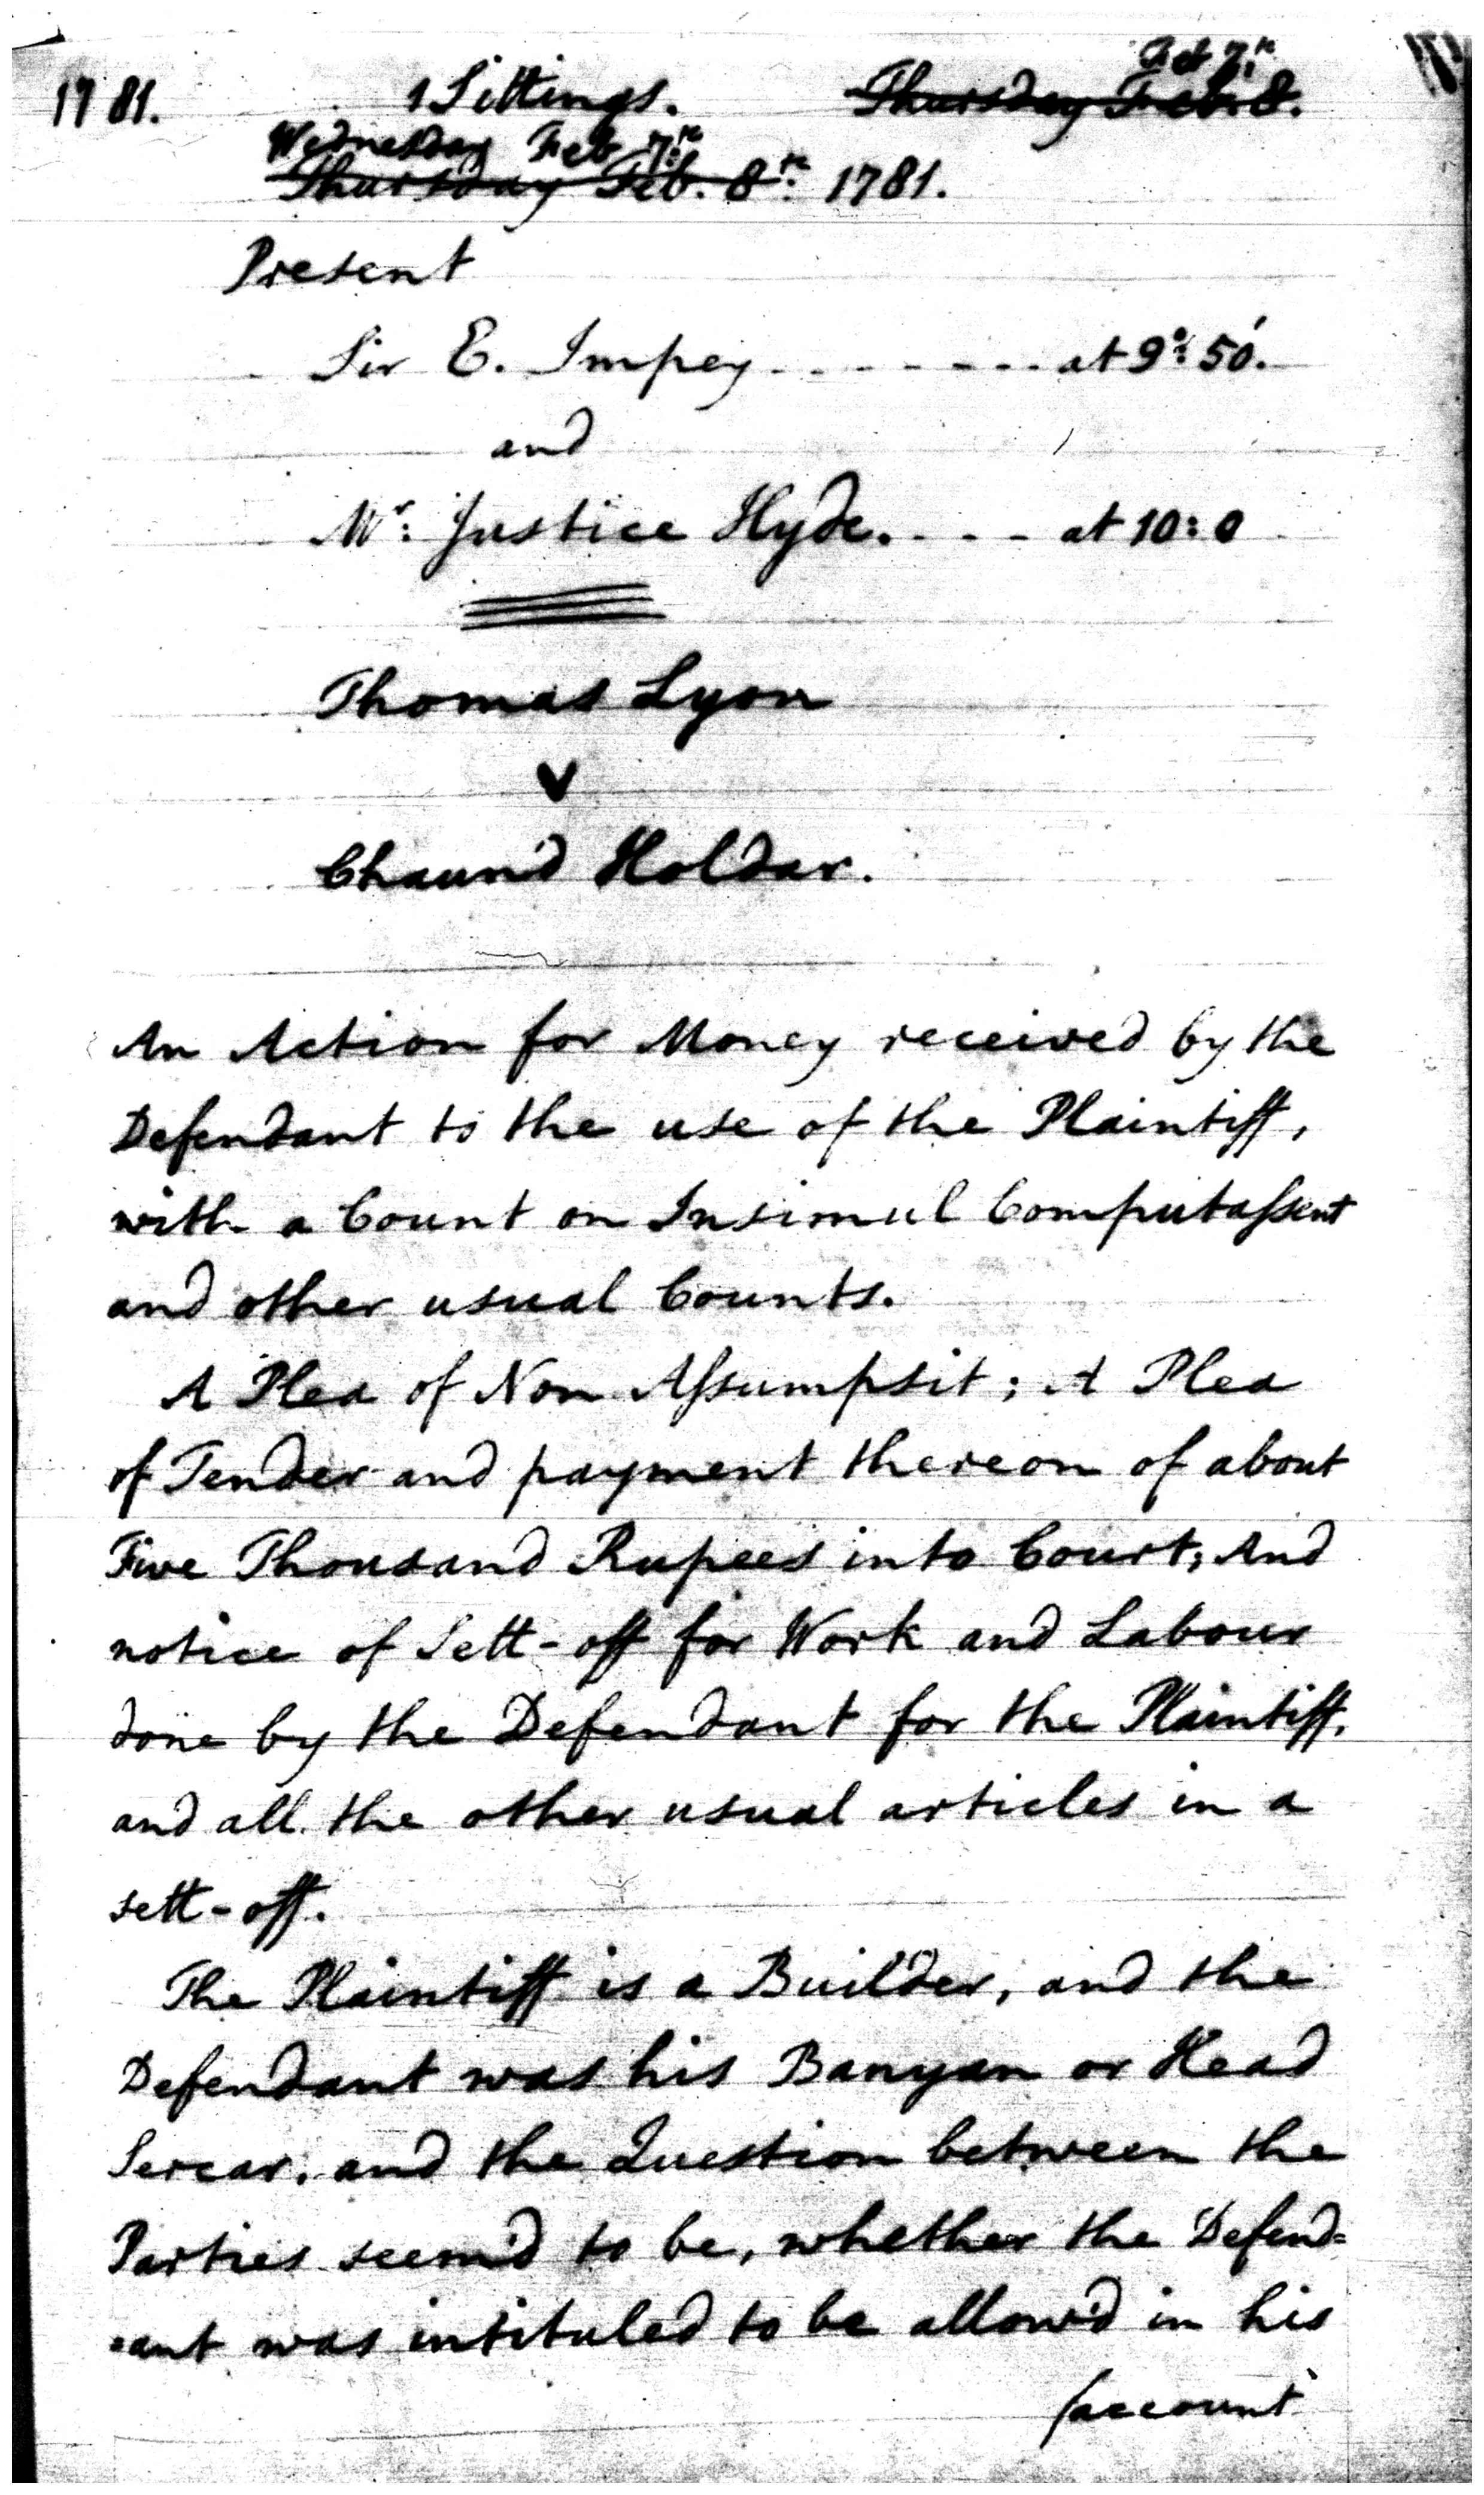 1781. 1 Sittings. Thursday Feb. 8. Feb 7th
Wednesday Feb 7th
Thursday Feb. 8th 1781.
Present
Sir E. Impey - - - - - - - at 9: 50'.
and
Mr: Justice Hyde. - - - at 10: 0
Thomas Lyon
V
Chaund Holdar.
An Action for Money received by the
Defendant to the use of the Plaintiff,
with a Count on Insimul Computaſsent
and other usual Counts.
A Plea of Non Aſsumpsit; A Plea
of Tender and payment thereon of about
Five Thousand Rupees into Court; And
notice of Sett-off for Work and Labour
done by the Defendant for the Plaintiff,
and all the other usual articles in a
sett-off.
The Plaintiff is a Builder, and the
Defendant was his Banyan or Head
Sercar, and the Question between the
Parties seem'd to be, whether the Defend=
=ant was intituled to be allow'd in his
/account